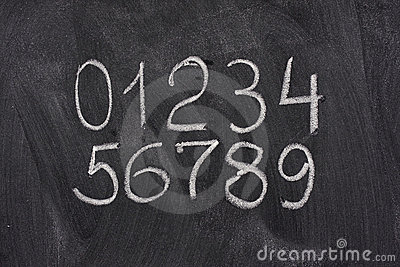 01234
56789
dreamstime